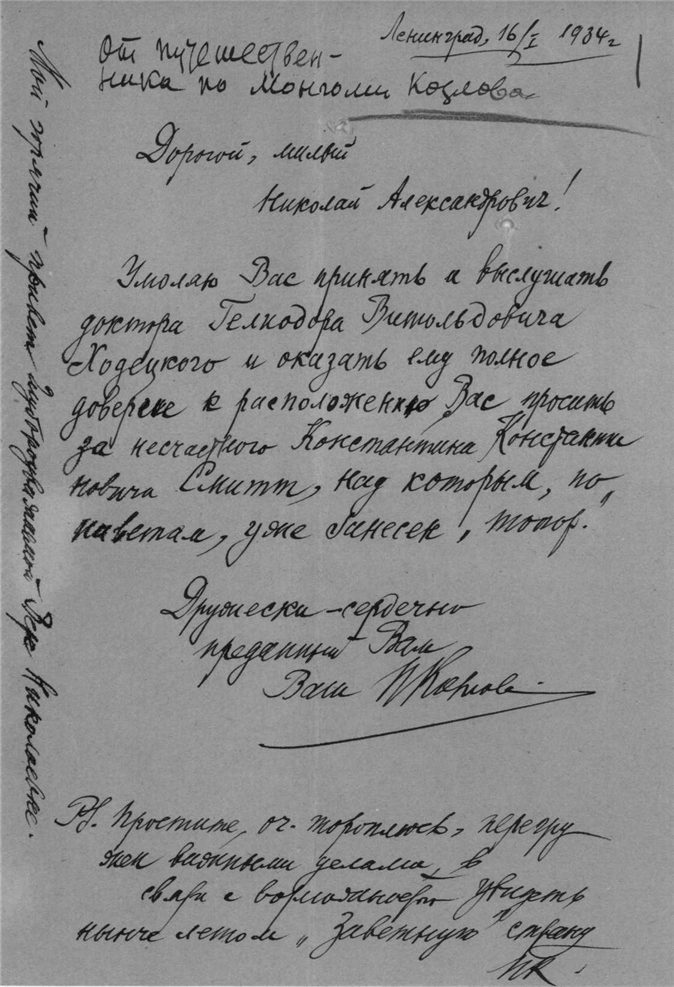 Ленинград, 16/I 1934 г
От путешествен-
ника по Монголии Козлова
Дорогой, милый
Николай Александрович!
Умоляю Вас принять и выслушать
доктора Гелиодора Витольдовича
Ходецкого и оказать ему полное
доверие к расположению Вас просить
за несчастного Константина Константи
новича Смитт, над которым, по
наветам, уже занесен „топор."
Дружески-сердечно
преданный Вам
Ваш ПКозлов
PS. Простите, оч. тороплюсь, перегру
жен важными делами, в
связи с возможностью увидеть
нынче летом „Заветную" страну
ПК.
Мой горячий привет глубокоуважаемой Николаевне.